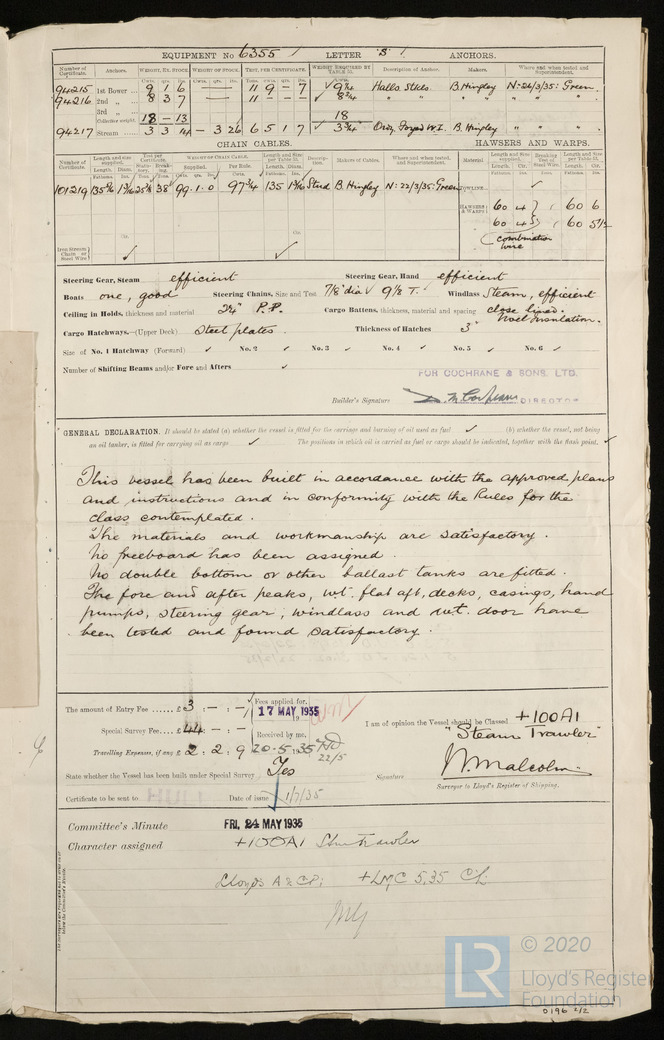 EQUIPMENT No 6355 / LETTER "S" / ANCHORS.
Number of Certificate. Anchors. WEIGHT, EX. STOCK WEIGHT OF STOCK. TEST, PER CERTIFICATE. WEIGHT REQUIRED BY TABLE 22. Description of Anchor. Makers. Where and when tested and Superintendent.
94215 1st Bower ... 9 1 6 — 11 9 - 7 9¼ Halls Stkls. B. Hingley N: 22/3/35: Green.
94216 2nd „ ... 8 3 7 — 11 - - - 8¾ " " " " " " "
3rd „ ...
Collective weight 18 - 13 18
94217 Stream ... 3 3 14 - 3 26 6 5 1 7 3¾ Ordy. Forged W.I. B. Hingley " " "
CHAIN CABLES. HAWSERS AND WARPS.
Number of Certificate. Length and size supplied. Test per Certificate. WEIGHT OF CHAIN CABLE. Length and Size per Table 22. Description. Makers of Cables. Where and when tested, and Superintendent. Material Length and Size supplied. Breaking Test of Steel Wire. Length and Size per Table 22.
Fathoms. Diam. Supplied. Per Rule. Fathoms. Diam. Fathoms. Cir. Tons. Fathoms. Cir.
101219 99 . 1 . 0 97¾ 135 Stud B. Hingley N: 22/3/35: Green TOWLINE
HAWSERS & WARPS 60 4 60 6
60 4 60 5½
(combination wire
Iron Stream Chain or Steel Wire
Steering Gear, Steam efficient Steering Gear, Hand efficient
Boats one, good Steering Chains, Size and Test 7/8" dia 9 1/8 T. Windlass Steam, efficient
Ceiling in Holds, thickness and material 2¼" P.P. Cargo Battens, thickness, material and spacing close lined.
Cargo Hatchways.—(Upper Deck) Steel plates. Thickness of Hatches 3"
Size of No. 1 Hatchway (Forward) No. 2 No. 3 No. 4 No. 5 No. 6
Number of Shifting Beams and/or Fore and Afters
FOR COCHRANE & SONS. LTD.
Builder's Signature DIRECTOR
GENERAL DECLARATION. It should be stated (a) whether the vessel is fitted for the carriage and burning of oil used as fuel (b) whether the vessel, not being
an oil tanker, is fitted for carrying oil as cargo The positions in which oil is carried as fuel or cargo should be indicated, together with the flash point.
This vessel has been built in accordance with the approved plans
and instructions and in conformity with the Rules for the
class contemplated.
The materials and workmanship are satisfactory.
No freeboard has been assigned.
No double bottom or other ballast tanks are fitted.
The fore and after peaks, wt. flat aft, decks, casings, hand
pumps, steering gear, windlass and wt. door have
been tested and found satisfactory.
The amount of Entry Fee ...... £ 3 : - : - Fees applied for,
17 MAY 1935
Special Survey Fee.... £ 44 : - : - Received by me,
I am of opinion the Vessel should be Classed +100A1
"Steam Trawler"
Travelling Expenses, if any £ 2 : 2 : 9 20.5.1935 22/5
State whether the Vessel has been built under Special Survey Yes
Signature W. Malcolm
Surveyor to Lloyd's Register of Shipping.
Certificate to be sent to Date of issue 1/7/35
Committee's Minute FRI. 24 MAY 1935
Character assigned +100A1 Stm Trawler
Lloyds A & CP: +LMC 5,35 CL
© 2020
LR
Lloyd's Register
Foundation
0196 2/2